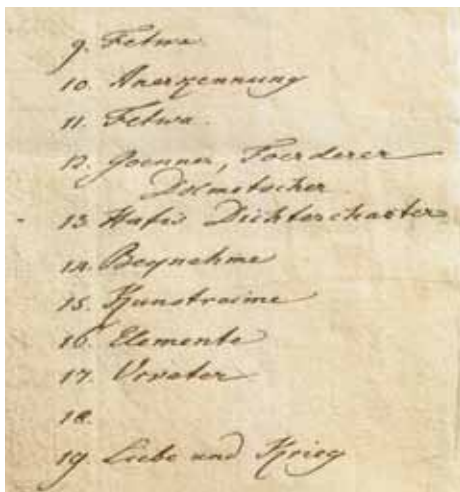 9. Fetwa.
10. Anerkennung
11. Fetwa.
12. Goenner, Foerderer
Dolmetscher
13. Hafis
14. Beynahme
15. Kunstreime
16. Elemente
17. Urvater
18.
19. Liebe und Krieg